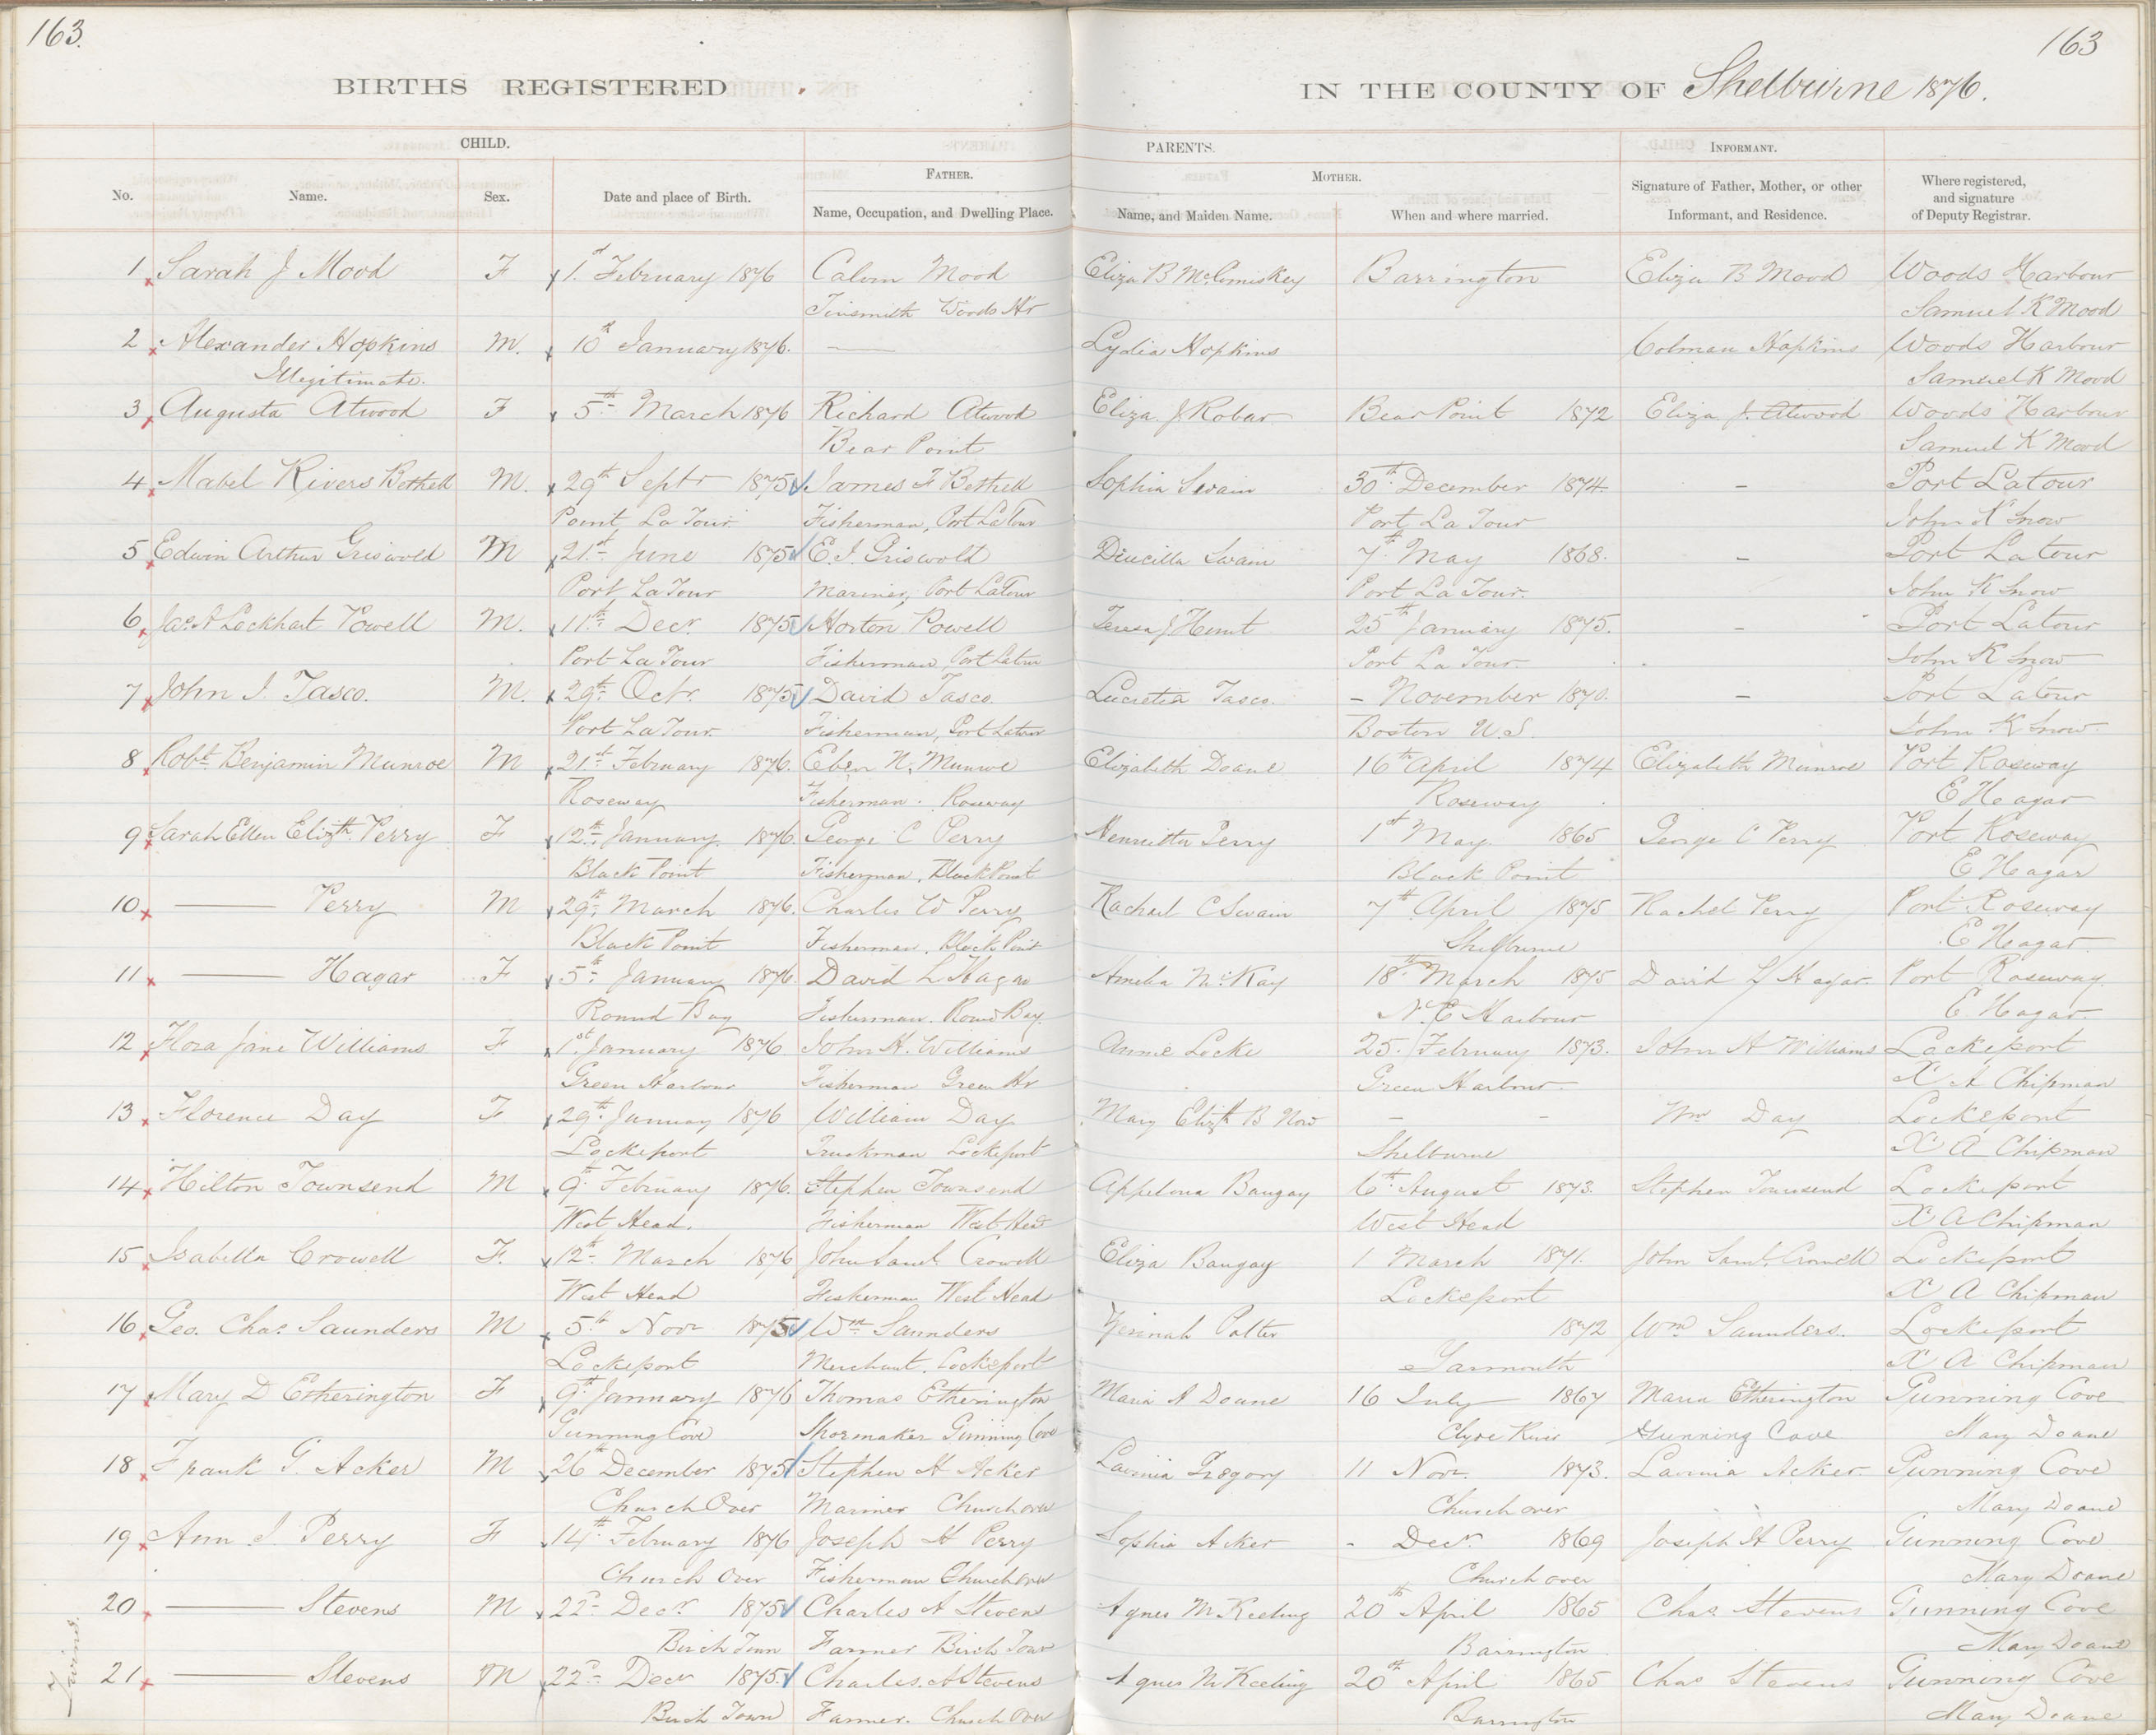 163.
163
BIRTHS REGISTERED
IN THE COUNTY OF Shelburne 1876.
CHILD.
PARENTS.
INFORMANT.
No.
Name.
Sex.
Date and place of Birth.
FATHER.
Name, Occupation, and Dwelling Place.
MOTHER.
Name, and Maiden Name.
When and where married.
Signature of Father, Mother, or other
Informant, and Residence.
Where registered,
and signature
of Deputy Registrar.
1 Sarah J Mood F 1st February 1876 Calvin Mood Eliza B McComiskey Barrington Eliza B Mood Woods Harbour
Tinsmith Woods Hr Samuel K Mood
2 Alexander Hopkins M. 10th January 1876. — Lydia Hopkins Colman Hopkins Woods Harbour
Illegitimate. Samuel K Mood
3 Augusta Atwood F 5th March 1876 Richard Atwood Eliza J. Robar Bear Point 1872 Eliza J. Atwood Woods Harbour
Bear Point Samuel K Mood
4 Mabel Rivers Bethell M. 29th Septr 1875 James F Bethell Sophia Swain 30th December 1874. – Port Latour
Point La Tour Fisherman, Port La Tour Port La Tour John K Snow
5 Edwin Arthur Griswold M 21st June 1875 E. I. Griswold Drucilla Swain 7th May 1868. – Port Latour
Port La Tour Mariner, Port LaTour Port La Tour. John K Snow
6 Jas. A Lockhart Powell M. 11th Decr. 1875 Horton Powell Teresa J Hunt 25th January 1875. – Port Latour
Port La Tour Fisherman, Port Latour Port La Tour John K Snow
7 John I. Tasco. M. 29th Octr. 1875 David Tasco Lucretia Tasco. – November 1870. – Port Latour
Port La Tour. Fisherman, Port Latour Boston U.S. John K Snow.
8 Robt. Benjamin Munroe M 21st February 1876. Eben N. Munroe Elizabeth Doane 16th April 1874 Elizabeth Munroe Port Roseway
Roseway Fisherman. Roseway Roseway E Hagar
9 Sarah Ellen Elizth. Perry F 12th January. 1876. George C Perry Henrietta Perry 1st May 1865 George C Perry Port Roseway
Black Point Fisherman. Black Point Black Point E Hagar
10 — Perry M 29th March 1876. Charles W Perry Rachael C Swain 7th April 1875 Rachel Perry Port Roseway
Black Point Fisherman. Black Point Shelburne E Hagar
11 — Hagar F 5th January 1876. David L Hagar Amelia McKay 18th March 1875 David L Hagar. Port Roseway
Round Bay Fisherman. Round Bay. N. E Harbour E. Hagar
12 Flora Jane Williams F 1st January 1876. John H. Williams Annie Locke 25. February 1873. John H Williams Lockeport
Green Harbour Fisherman Green Hr Green Harbour X A Chipman
13 Florence Day F 29th January 1876 William Day Mary Elizth B – – Wm Day Lockeport
Lockeport Truckman Lockeport Shelburne X A Chipman
14 Hilton Townsend M 9th February 1876. Stephen Townsend Appelona Bangay 6th August 1873. Stephen Townsend Lockeport
West Head. Fisherman West Head West Head X A Chipman
15 Isabella Crowell F. 12th March 1876 John Saml. Crowell Eliza Bangay 1 March 1871. John Saml. Crowell Lockeport
West Head Fisherman West Head Lockeport X A Chipman
16 Geo. Chas. Saunders M 5th Novr 1875 Wm Saunders Potter 1872 Wm Saunders. Lockeport
Lockeport Merchant. Lockeport Yarmouth X A Chipman
17 Mary D Etherington F 9th January 1876 Thomas Etherington Maria A Doane 16 July 1867 Maria Etherington Gunning Cove
Gunning Cove Shoemaker Gunning Cove Clyde River Gunning Cove Mary Doane
18 Frank G. Acker M 26th December 1875 Stephen H Acker Lavinia Gregory 11 Novr. 1873. Lavinia Acker Gunning Cove
Church Over Mariner Church over Church over Mary Doane
19 Ann I. Perry F 14th February 1876 Joseph H Perry Sophia Acker - Decr. 1869 Joseph H Perry Gunning Cove
Church Over Fisherman Church over Church over Mary Doane
20 — Stevens M 22d Decr. 1875 Charles A Stevens Agnes McKeeling 20th April 1865 Chas. Stevens Gunning Cove
Birch Town Farmer Birch Town Barrington Mary Doane
Twins.
21 — Stevens M 22d Decr 1875. Charles. A Stevens Agnes McKeeling 20th April 1865 Chas Stevens Gunning Cove
Birch Town Farmer. Church Over Barrington Mary Doane